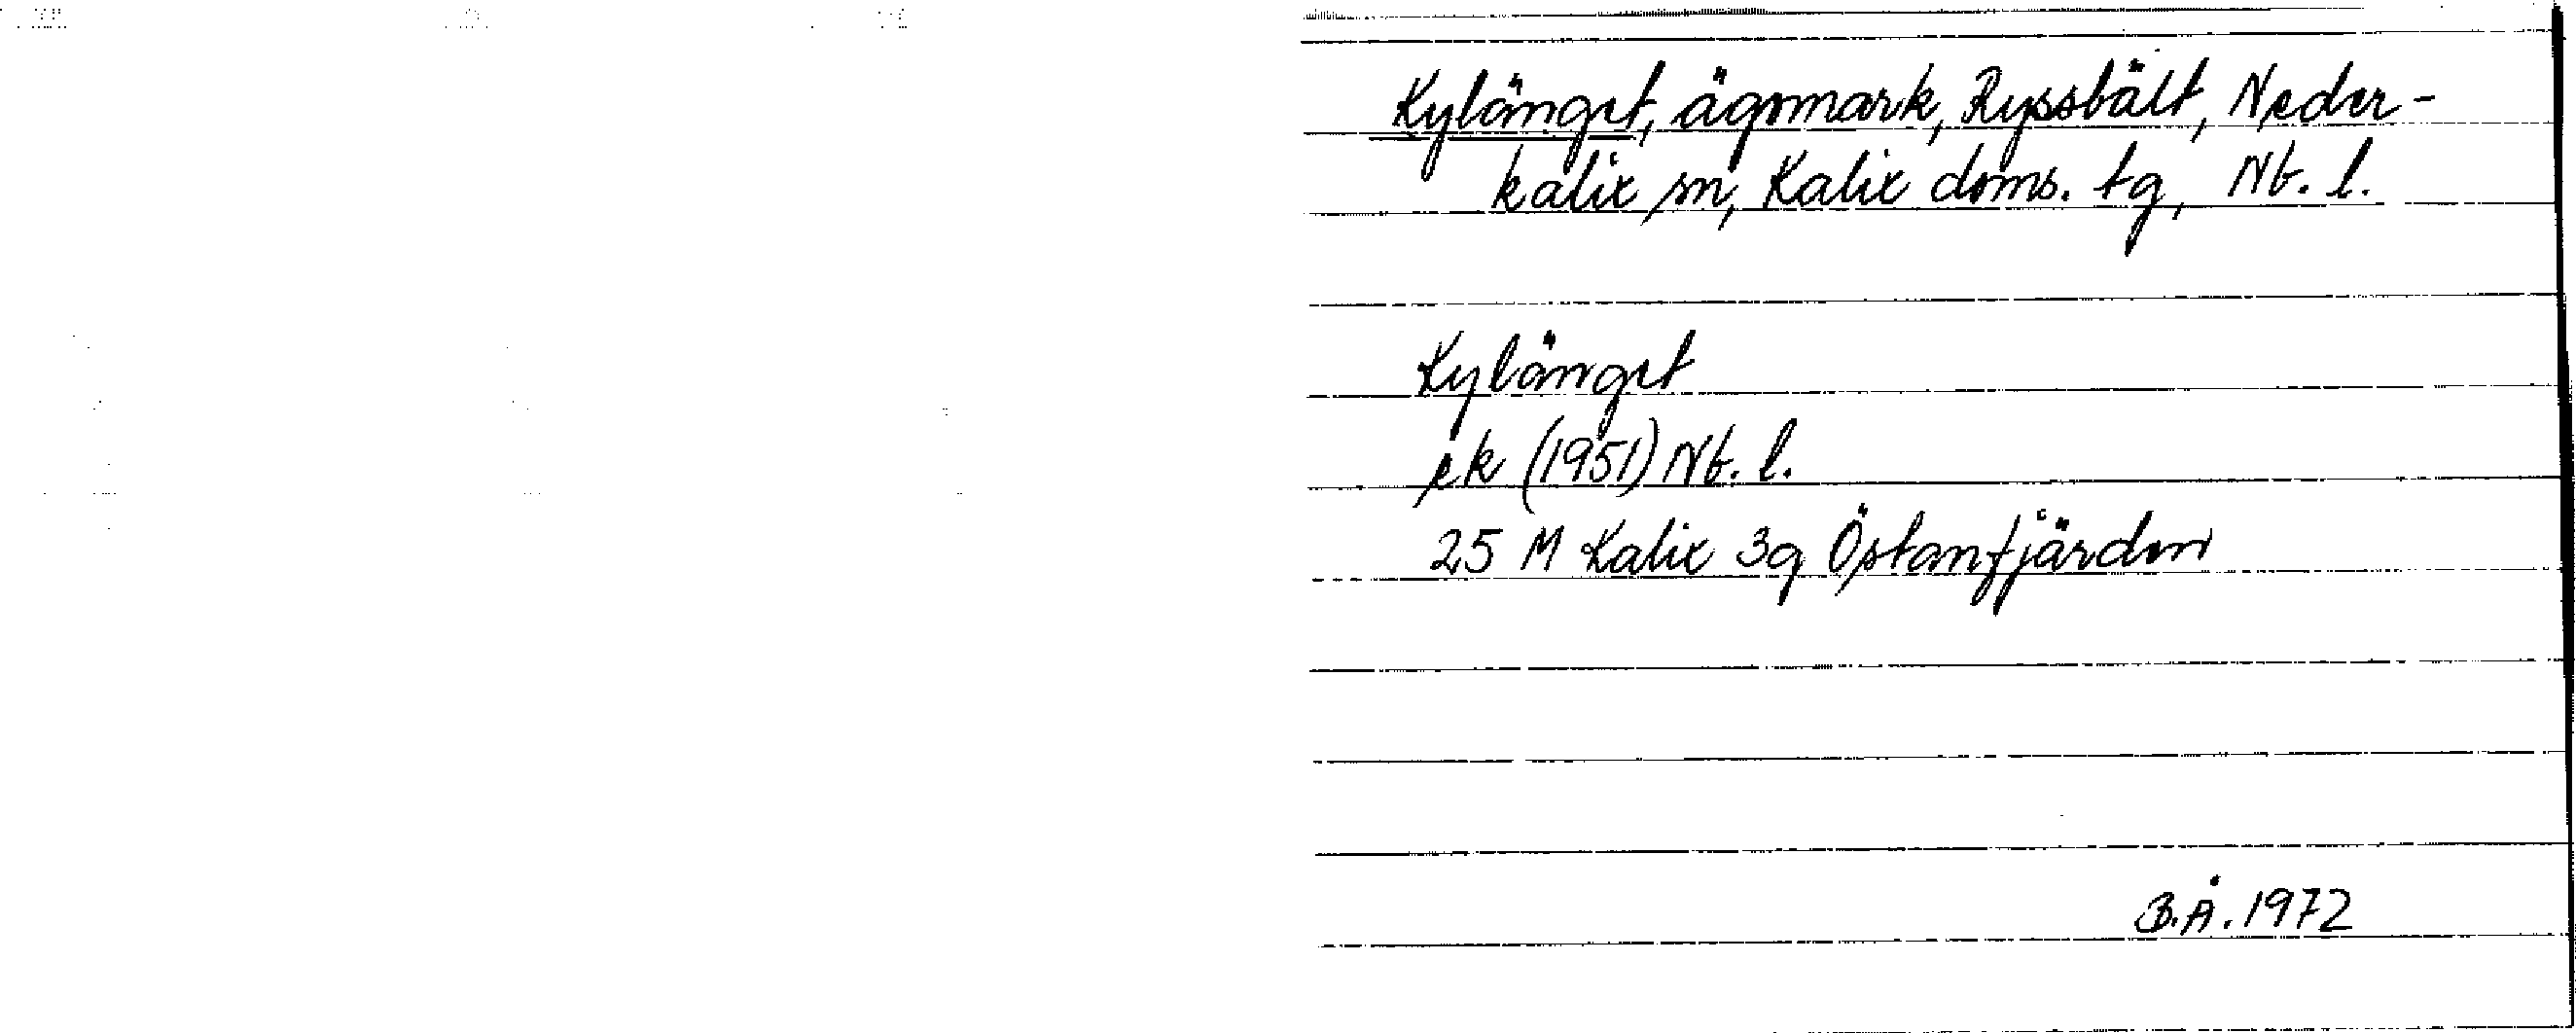 Kylänget, ägomark, Ryssbält, Neder-
kalix sn, Kalix doms. tg, Nb. l.
Kylänget
ek (1951) Nb. l.
25 M Kalix 3g Östanfjärden
B.Å. 1972